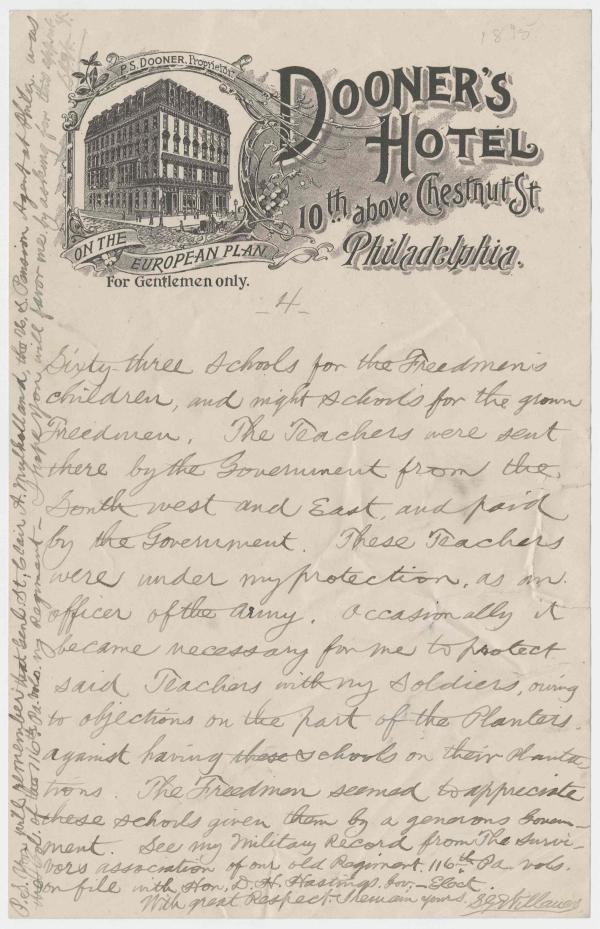 1895
P.S. DOONER, Proprietor.
DOONER'S
HOTEL
10th above Chestnut St.
Philadelphia.
ON THE
EUROPEAN PLAN
For Gentlemen only.
- 4 -
Sixty-three schools for the Freedmen's
children, and night schools for the grown
Freedmen. The Teachers were sent
there by the Government from the
South west and East, and paid
by the Government. These Teachers
were under my protection, as an
officer of the army. Occasionally it
became necessary for me to protect
said Teachers with my Soldiers, owing
to objections on the part of the Planters
against having these schools on their Planta-
tions. The Freedmen seemed to appreciate
these schools given them by a generous Govern-
ment. See my Military Record from The Survi-
vors association of our old Regiment. 116th Pa. vols.
on file with Hon. D. H. Hastings, Gov.-Elect.
With great Respect. I remain yours.
P.S. You will remember that Genl. St. Clair A. Mulholland, the U.S. Pension Agent at Phila. was
the Col. of the 116th Pa. vols. my Regiment- I hope you will favor me by asking for this